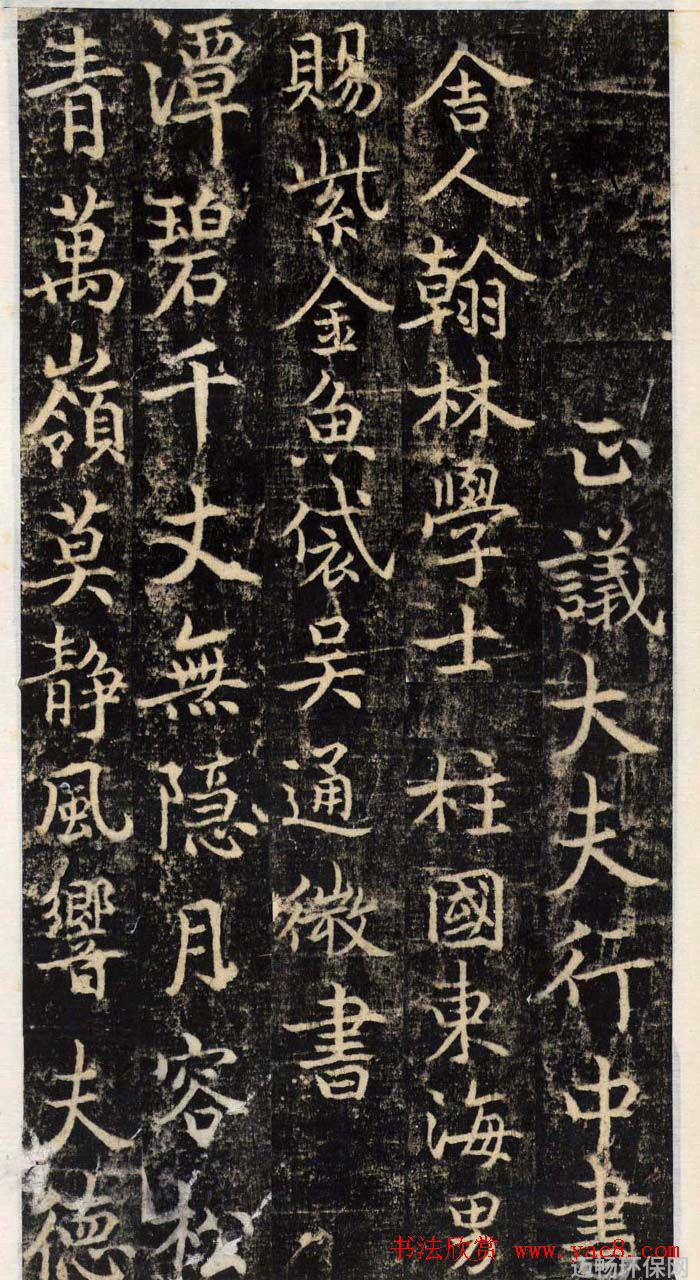 正議大夫行中書
舍人翰林學士 柱國東海男
賜紫金魚袋吴通微書
潭碧千丈無隱月容松
青萬嶺莫静風響夫德
书法欣赏 www.yac8.com
迈畅环保网